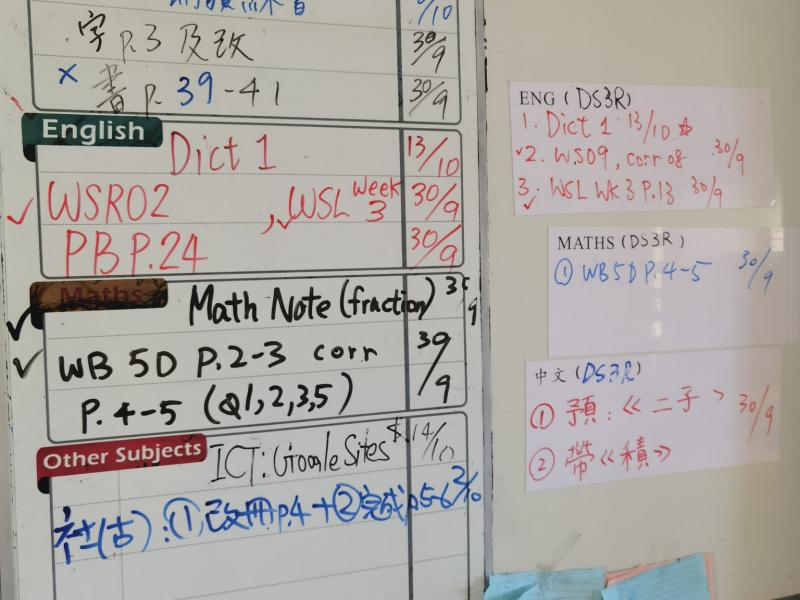 /10
字 P.3 及改 30/9
× 書 P. 39-41 30/9
English
Dict 1 13/10
WSR02 , WSL week 3 30/9
PB P.24 30/9
Maths
Math Note (fraction) 30/9
WB 5D P.2-3 corr 30/9
P.4-5 (Q1,2,3,5)
Other Subjects
ICT: Google Sites 14/10
社(古):①改冊P.4+②完成P.5-6 2/10
ENG (DS3R)
1. Dict 1 13/10 ☆
2. WS09, corr 08 30/9
3. WSL WK3 P.13 30/9
MATHS (DS3R)
① WB5D P.4-5 30/9
中文 (DS3R)
① 預:《二子》 30/9
② 帶《積》